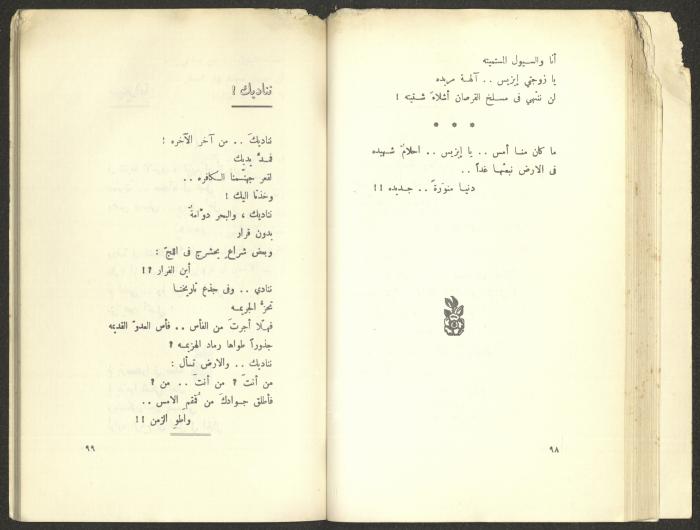 أنا والسيول المستميته
يا زوجتي إيزيس .. آلهة مريده
لن ننتهي فى مسلخ القرصان أشلاءً شتيته !
* * *
ما كان منا أمس .. يا إيزيس .. احلامٌ شهيده
فى الارض نبعثها غداً ..
دنيا منوّرةً .. جديده !!
٩٨
نناديك !
نناديكَ .. من آخر الآخره !
فمدَّ يديك
لقعر جهنّمنا الكافره ..
وخذنا اليك !
نناديك ، والبحر دوّامةٌ
بدون قرار
وبعض شراعٍ يحشرج فى اللجّ :
أين الفرار ؟!
ننادي .. وفى جذع تاريخنا
تحزُّ الجريمه
فهلّا أجرتَ من الفأس .. فأس العدوّ القديمه
جذوراً طواها رماد الهزيمه
نناديك .. والارض تسأل :
من أنتَ ؟ من أنتَ .. من ؟
فأطلق جوادكَ من قمقم الامس ..
واطوِ الزمن !!
٩٩